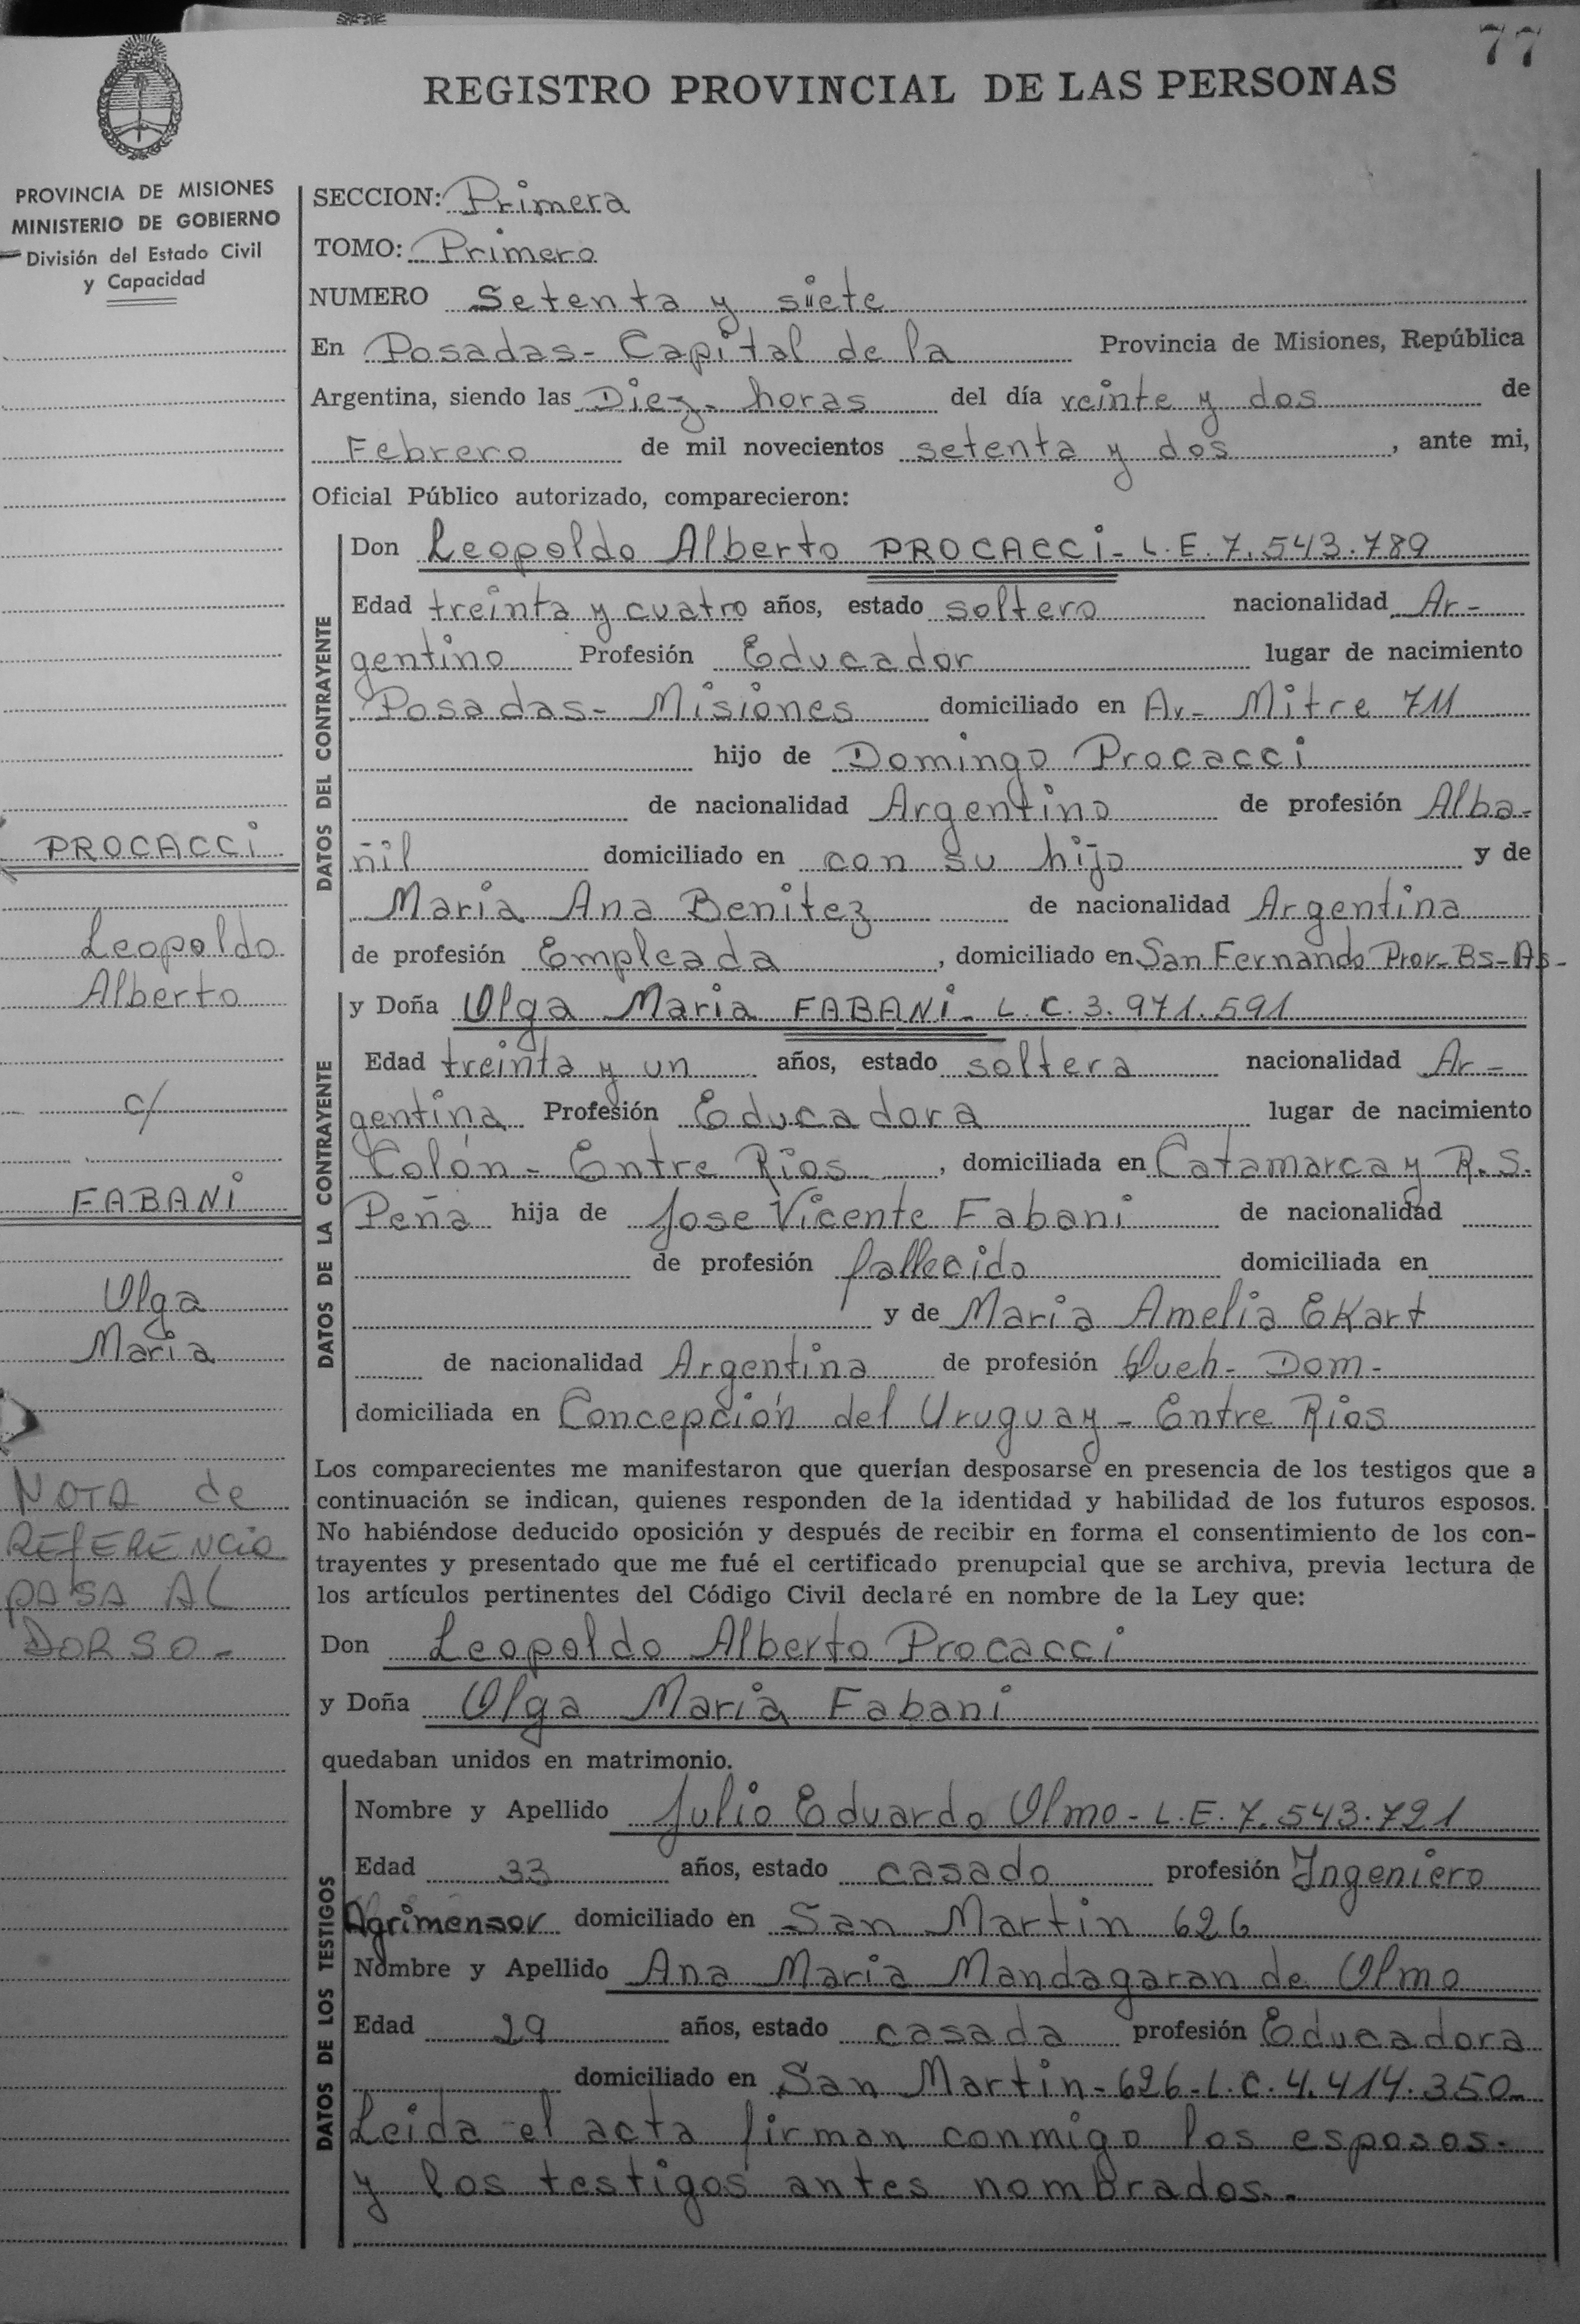 77
REGISTRO PROVINCIAL DE LAS PERSONAS
PROVINCIA DE MISIONES
MINISTERIO DE GOBIERNO
División del Estado Civil
y Capacidad
SECCION: Primera
TOMO: Primero
NUMERO Setenta y siete
En Posadas- Capital de la Provincia de Misiones, República
Argentina, siendo las Diez- horas del día veinte y dos de
Febrero de mil novecientos setenta y dos, ante mi,
Oficial Público autorizado, comparecieron:
DATOS DEL CONTRAYENTE
Don Leopoldo Alberto PROCACCi- L.E. 7.543.789
Edad treinta y cuatro años, estado soltero nacionalidad Ar-
gentino Profesión Educador lugar de nacimiento
Posadas- Misiones domiciliado en Av- Mitre 711
hijo de Domingo Procacci
de nacionalidad Argentino de profesión Alba-
ñil domiciliado en con su hijo y de
Maria Ana Benitez de nacionalidad Argentina
de profesión Empleada, domiciliado en San Fernando Prov- Bs-As-
DATOS DE LA CONTRAYENTE
y Doña Olga Maria FABANi- L.C. 3.971.591
Edad treinta y un años, estado soltera nacionalidad Ar-
gentina Profesión Educadora lugar de nacimiento
Colón- Entre Rios, domiciliada en Catamarca y R.S.
Peña hija de Jose Vicente Fabani de nacionalidad
de profesión fallecido domiciliada en
y de Maria Amelia EKart
de nacionalidad Argentina de profesión Queh- Dom-
domiciliada en Concepción del Uruguay- Entre Rios
Los comparecientes me manifestaron que querían desposarse en presencia de los testigos que a
continuación se indican, quienes responden de la identidad y habilidad de los futuros esposos.
No habiéndose deducido oposición y después de recibir en forma el consentimiento de los con-
trayentes y presentado que me fué el certificado prenupcial que se archiva, previa lectura de
los artículos pertinentes del Código Civil declaré en nombre de la Ley que:
Don Leopoldo Alberto Procacci
y Doña Olga Maria Fabani
quedaban unidos en matrimonio.
DATOS DE LOS TESTIGOS
Nombre y Apellido Julio Eduardo Olmo- L.E. 7.543.721
Edad 33 años, estado casado profesión Ingeniero
Agrimensor domiciliado en San Martin 626
Nombre y Apellido Ana Maria Mandagaran de Olmo
Edad 29 años, estado casada profesión Educadora
domiciliado en San Martin- 626- L.C. 4.414.350-
Leida el acta firman conmigo los esposos-
y los testigos antes nombrados.-
PROCACCi
Leopoldo
Alberto
c/
FABANi
Olga
Maria
NOTA de
REfERENCia
pASA AL
DORSO-